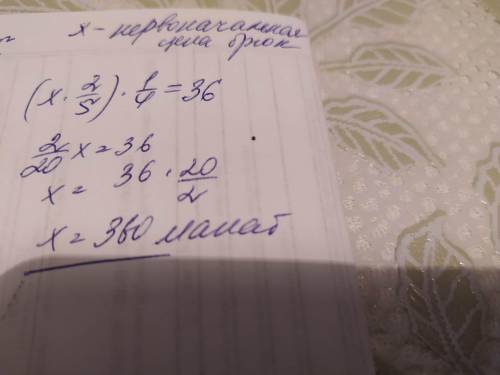 x - первоначальная
цена брюк
(x · 2/5) · 1/4 = 36
2/20 x = 36
x = 36 · 20/2
x = 360 манат